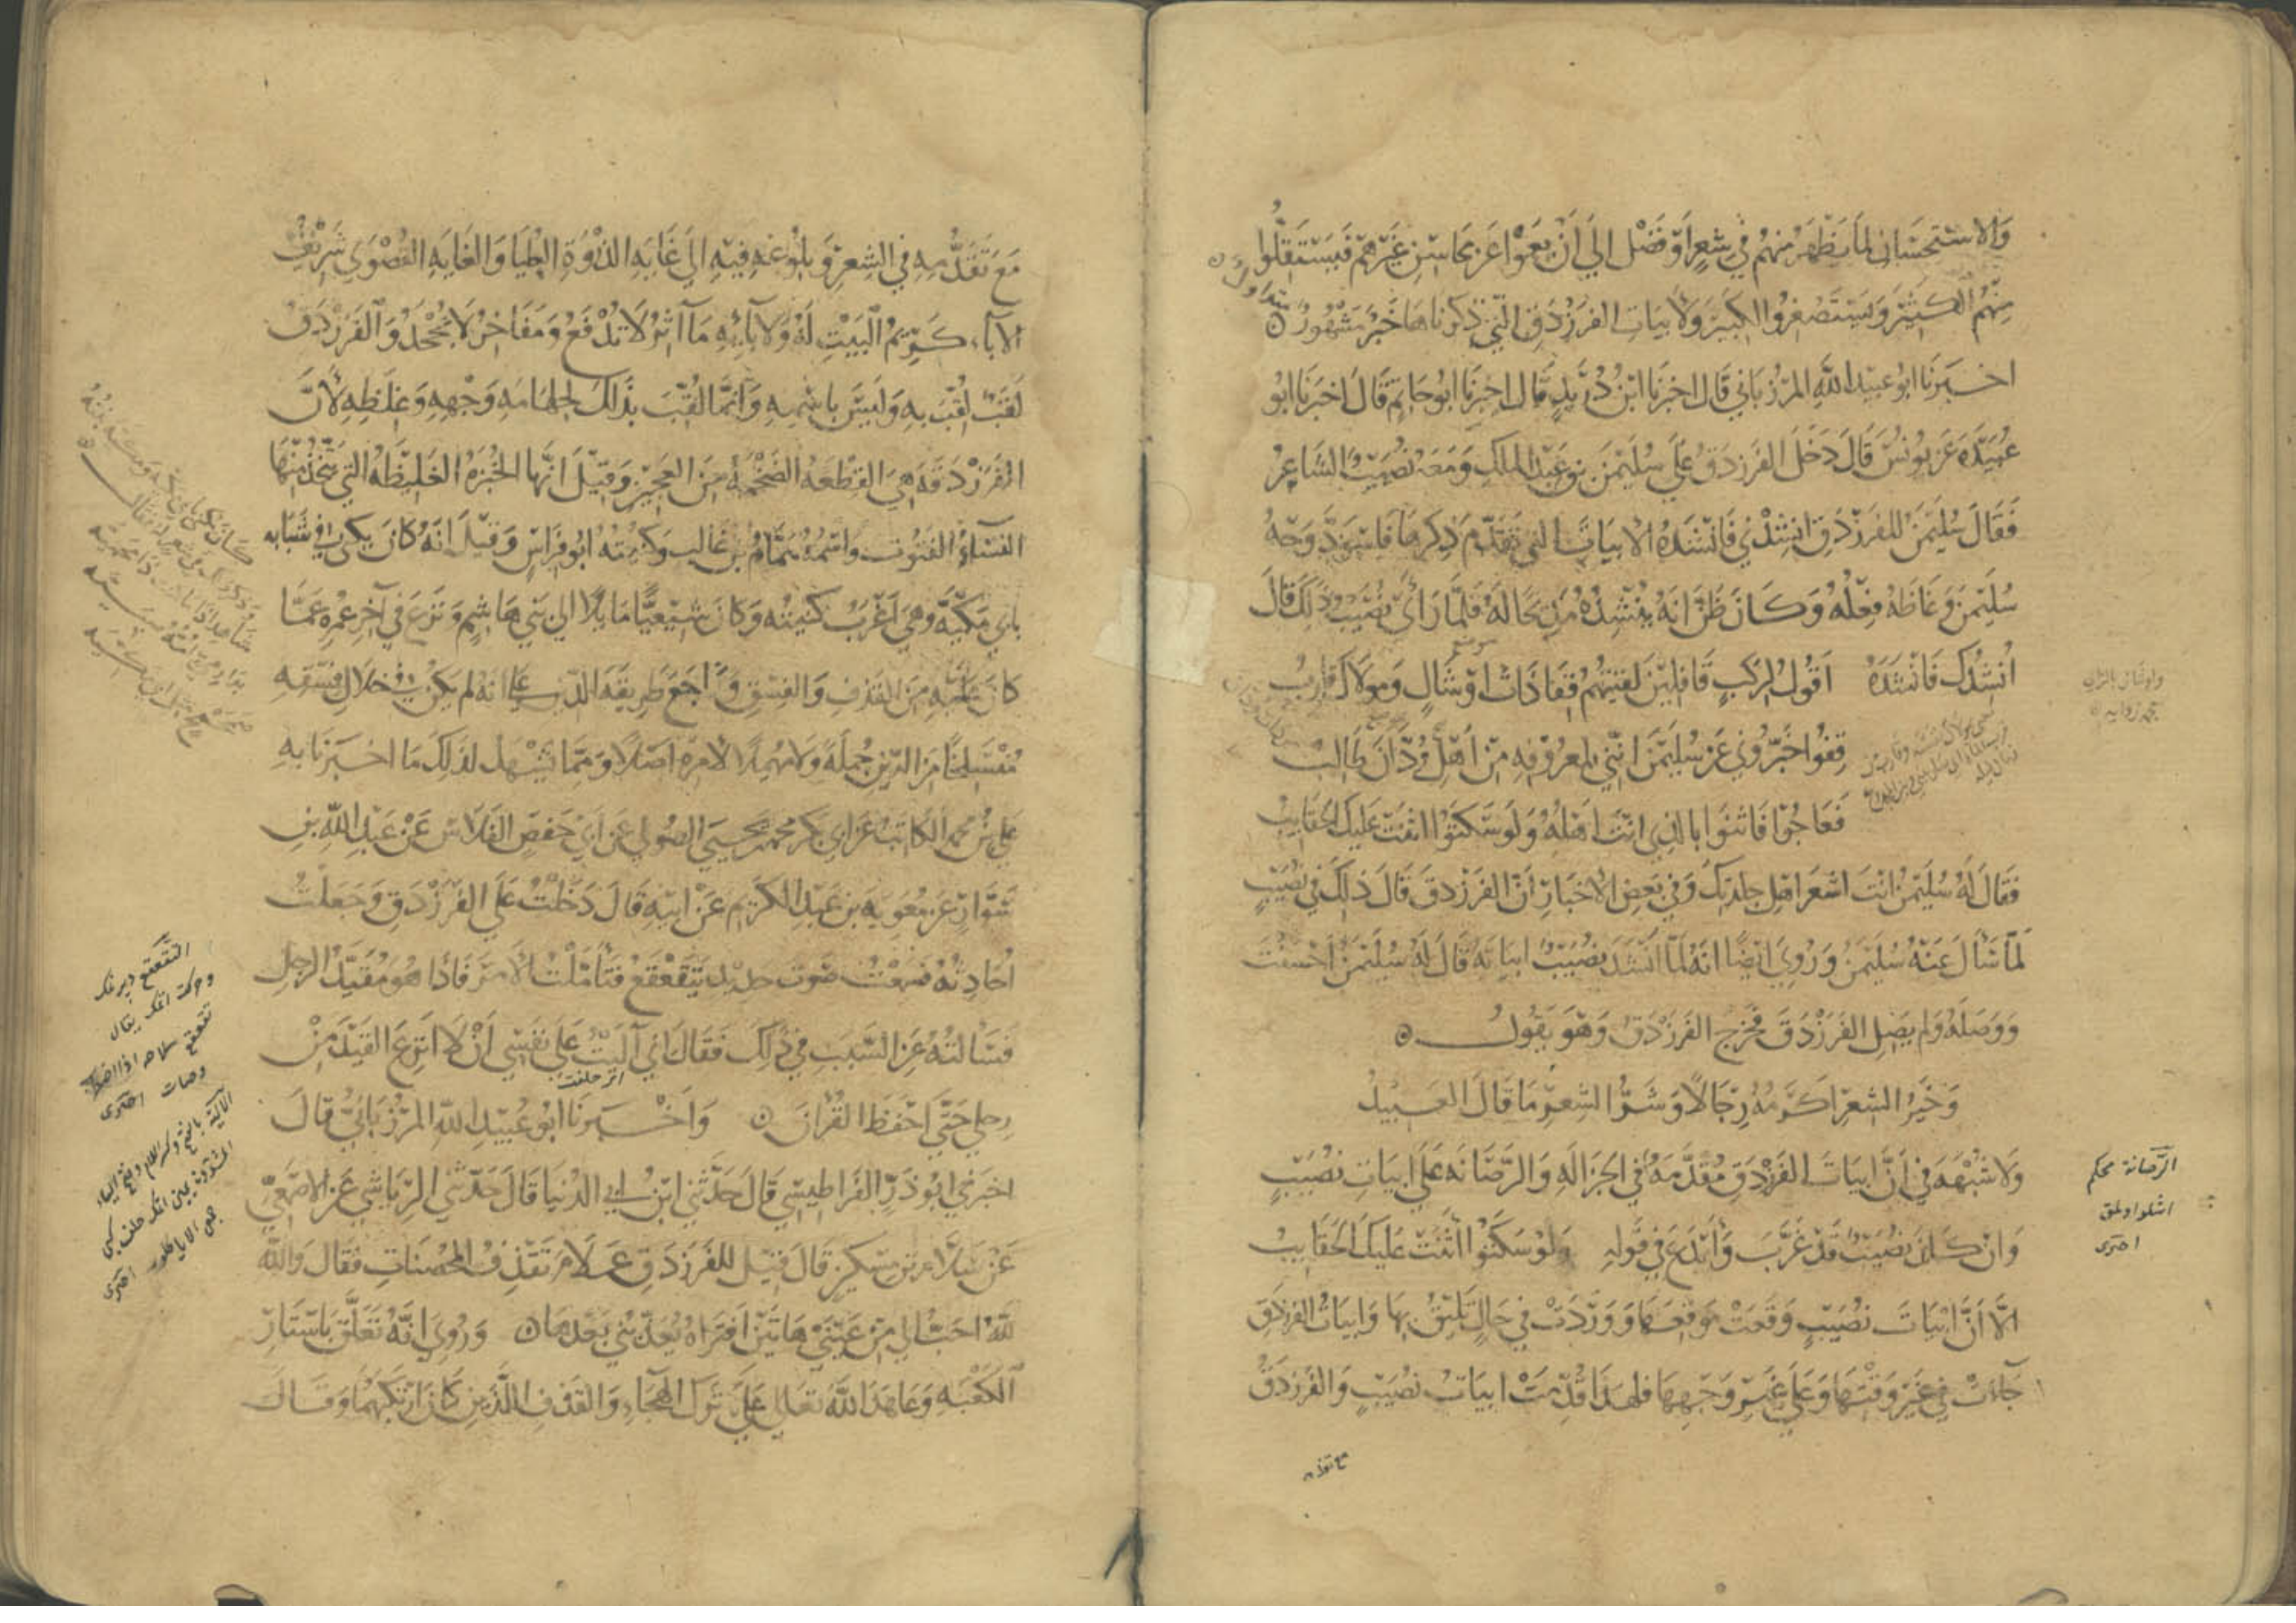 والاستحسان لما يظهر منهم في شعر او فضل الي ان يعموا عن محاسن غيرهم فيستقلوا
منهم الكثير ويستصغروا الكبير ولابيات الفرزدق التي ذكرناها خبر مشهور متداول
اخبرنا ابو عبيد الله المرزباني قال اخبرنا ابن دريد قال اخبرنا ابو حاتم قال اخبرنا ابو
عبيدة عن يونس قال دخل الفرزدق علي سليمن بن عبد الملك ومعه نصيب الشاعر
فقال سليمن للفرزدق انشدني فانشده الابيات التي تقدم ذكرها فاسود وجه
سليمن وغاظه فعله وكان ظن انه ينشده مديحا له فلما رأى نصيب ذلك قال
انشدك فانشده اقول لركب قافلين لقيتهم قفا ذات اوشال ومولاك قارب
قفوا خبروني عن سليمن انني لمعروفه من اهل ودان طالب
فعاجوا فاثنوا بالذي انت اهله ولو سكتوا اثنت عليك الحقايب
فقال له سليمن انت اشعر اهل جلدتك وفي بعض الاخبار ان الفرزدق قال ذلك في نصيب
لما سأل عنه سليمن وروي ايضا انه لما انشد نصيب ابياته قال له سليمن احسنت
ووصله ولم يصل الفرزدق فخرج الفرزدق وهو يقول
وخير الشعر اكرمه رجالا وشر الشعر ما قال العبيد
ولا شبهه في ان ابيات الفرزدق مقدمه في الجزاله والرصانه على ابيات نصيب
وان كان نصيب قد غرب وأبدع في قوله ولو سكتوا اثنت عليك الحقايب
الا أن ابيات نصيب وقعت موقعها ووردت في حال تليق بها وابيات الفرزدق
جاءت في غير وقتها وعلى غير وجهها فلهذا قدمت ابيات نصيب والفرزدق
الرصانة محكم
اخترى
مع تقدمه
مع تقدمه في الشعر وبلوغه فيه الى غايه الذروة العليا والغايه القصوي شريف
الآباء كريم البيت له ولآبائه مآثر لا تدفع ومفاخر لا تجحد والفرزدق
لقب لقب به وليس باسمه وانما لقب بذلك لجهامه وجهه وغلظه لأن
الفرزدقه هي القطعه الضخمه من العجين وقيل انها الخبزه الغليظه التي يتخذ منها
النساء الفتوت واسمه همام بن غالب وكنيته ابو فراس وقيل انه كان يكنى في شبابه
بابي مكيه وهي اغرب كنيته وكان شيعيا مايلا الى بني هاشم ونزع في آخر عمره عما
كان عليه من القذف والفسق وراجع طريقه الدين على انه لم يكن في خلال فسقه
منسلخا من الدين جملة ولا مهملا لامره اصلا ومما يشهد لذلك ما اخبرنا به
علي بن محمد الكاتب عن ابي بكر محمد بن يحيى الصولي عن ابي حفص الفلاس عن عبد الله بن
سوار عن معويه بن عبد الكريم عن ابيه قال دخلت على الفرزدق وجعلت
احادثه فسمعت صوت حديد يتقعقع فتأملت الامر فاذا هو مقيد الرجل
فسألته عن السبب في ذلك فقال اني آليت على نفسي أن لا انزع القيد من
اي حلفت
رجلي حتى احفظ القرآن وأخبرنا ابو عبيد الله المرزباني قال
اخبرني ابو ذر القراطيسي قال حدثني ابن ابي الدنيا قال حدثني الرياشي عن الاصمعي
عن سلام بن مسكين قال قيل للفرزدق علام تقذف المحصنات فقال والله
لله احب الي من عيني هاتين افتراه يعذبني بعدها وروي انه تعلق باستار
الكعبه وعاهد الله تعالى على ترك الهجاء والقذف اللذين كان ارتكبهما وقال
التقعقع
تقعقع سلاحه اذا
اخترى